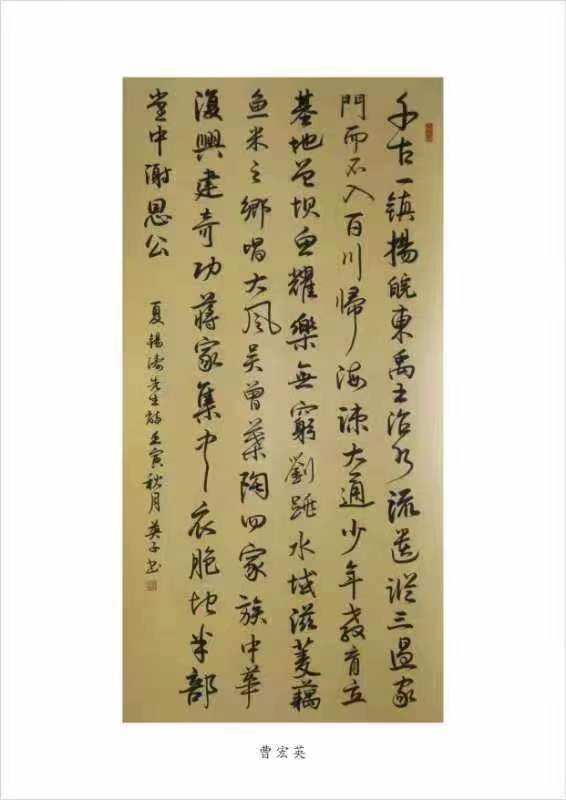 千古一镇揚皖東禹王治水流遺踪三過家
門而不入百川歸海疎大通少年教育立
基地曾坝鱼耀樂無窮劉跳水域滋菱藕
鱼米之鄉唱大風吴曾葉陶四家族中華
復興建奇功蔣家集中衣胞地半部
堂中谢恩公
夏錫濤先生詩壬寅秋月英子书
曹宏英